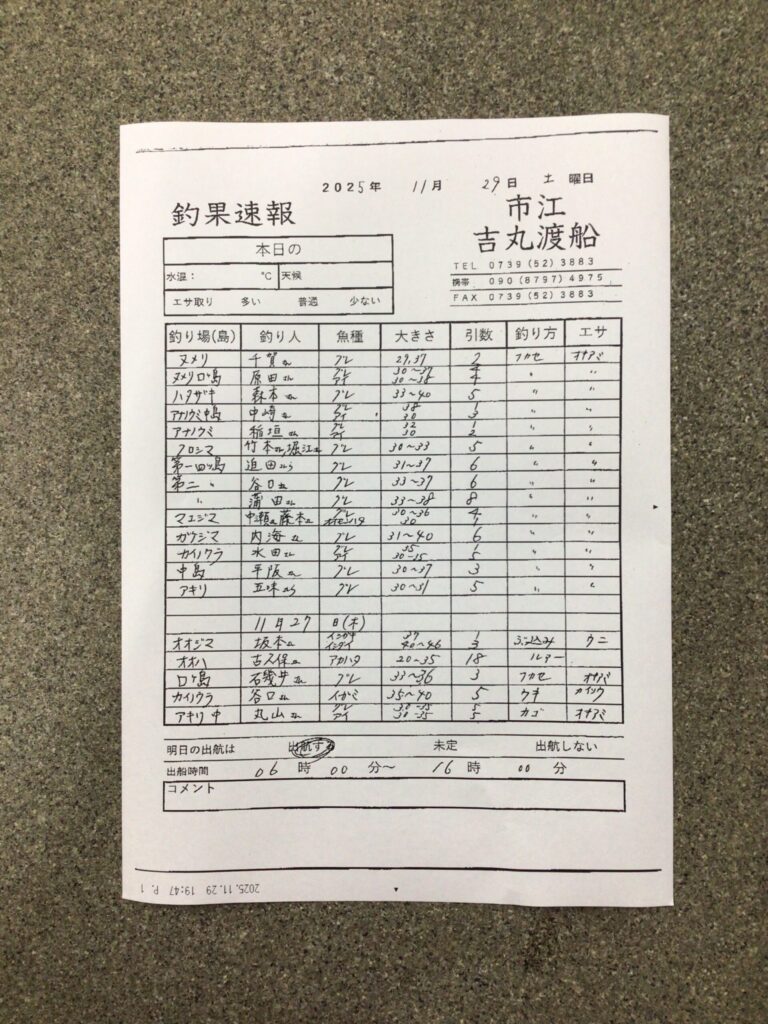 2025年 11月 29日 土 曜日
釣果速報
市江
吉丸渡船
TEL 0739 (52) 3883
携帯 090 (8797) 4975
FAX 0739 (52) 3883
本日の
水温： ℃ 天候
エサ取り 多い 普通 少ない
釣り場(島) 釣り人 魚種 大きさ 引数 釣り方 エサ
ヌメリ 千賀さん グレ 27,37 2 フカセ オキアミ
ヌメリロ島 原田さん グレ 30〜37 4 〃 〃
アイ 30〜38 4
ハタザキ 森本さん グレ 33〜40 5 〃 〃
アナノウミ中島 中崎さん グレ 38 1 〃 〃
アイ 30 3
アナノウミ 稲垣さん グレ 32 1 〃 〃
アイ 30 2
クロシマ 竹本さん,堀江さん グレ 30〜33 5 〃 〃
第一四ツ島 迫田さん グレ 31〜37 6 〃 〃
第二 〃 谷口さん グレ 33〜37 6 〃 〃
〃 蒲田さん グレ 33〜38 8 〃 〃
マエジマ 中瀬さん藤本さん グレ 30〜36 4 〃 〃
30 1
ガウジマ 内海さん グレ 31〜40 6 〃 〃
カイノウラ 水田さん グレ 35 1 〃 〃
アイ 30-15 5
中島 平阪さん グレ 30〜37 3 〃 〃
アキリ 五味さん グレ 30〜31 5 〃 〃
11月27 日(木)
オオジマ 坂本さん イシガキ 37 1 ぶっ込み ウニ
イシダイ 40〜46 3
オオハ 古久保さん アカハタ 20〜35 18 ルアー
ロノ島 石磯さん グレ 33〜36 3 フカセ オキアミ
カイノウラ 谷口さん イガミ 35〜40 5 ウキ カイソウ
アキリ中 丸山さん グレ 30-35 5 カゴ オキアミ
アイ 30-35 5
明日の出航は 出航する 未定 出航しない
出船時間 06 時 00 分〜 16 時 00 分
コメント
2025.11.29 19:47 P. 1